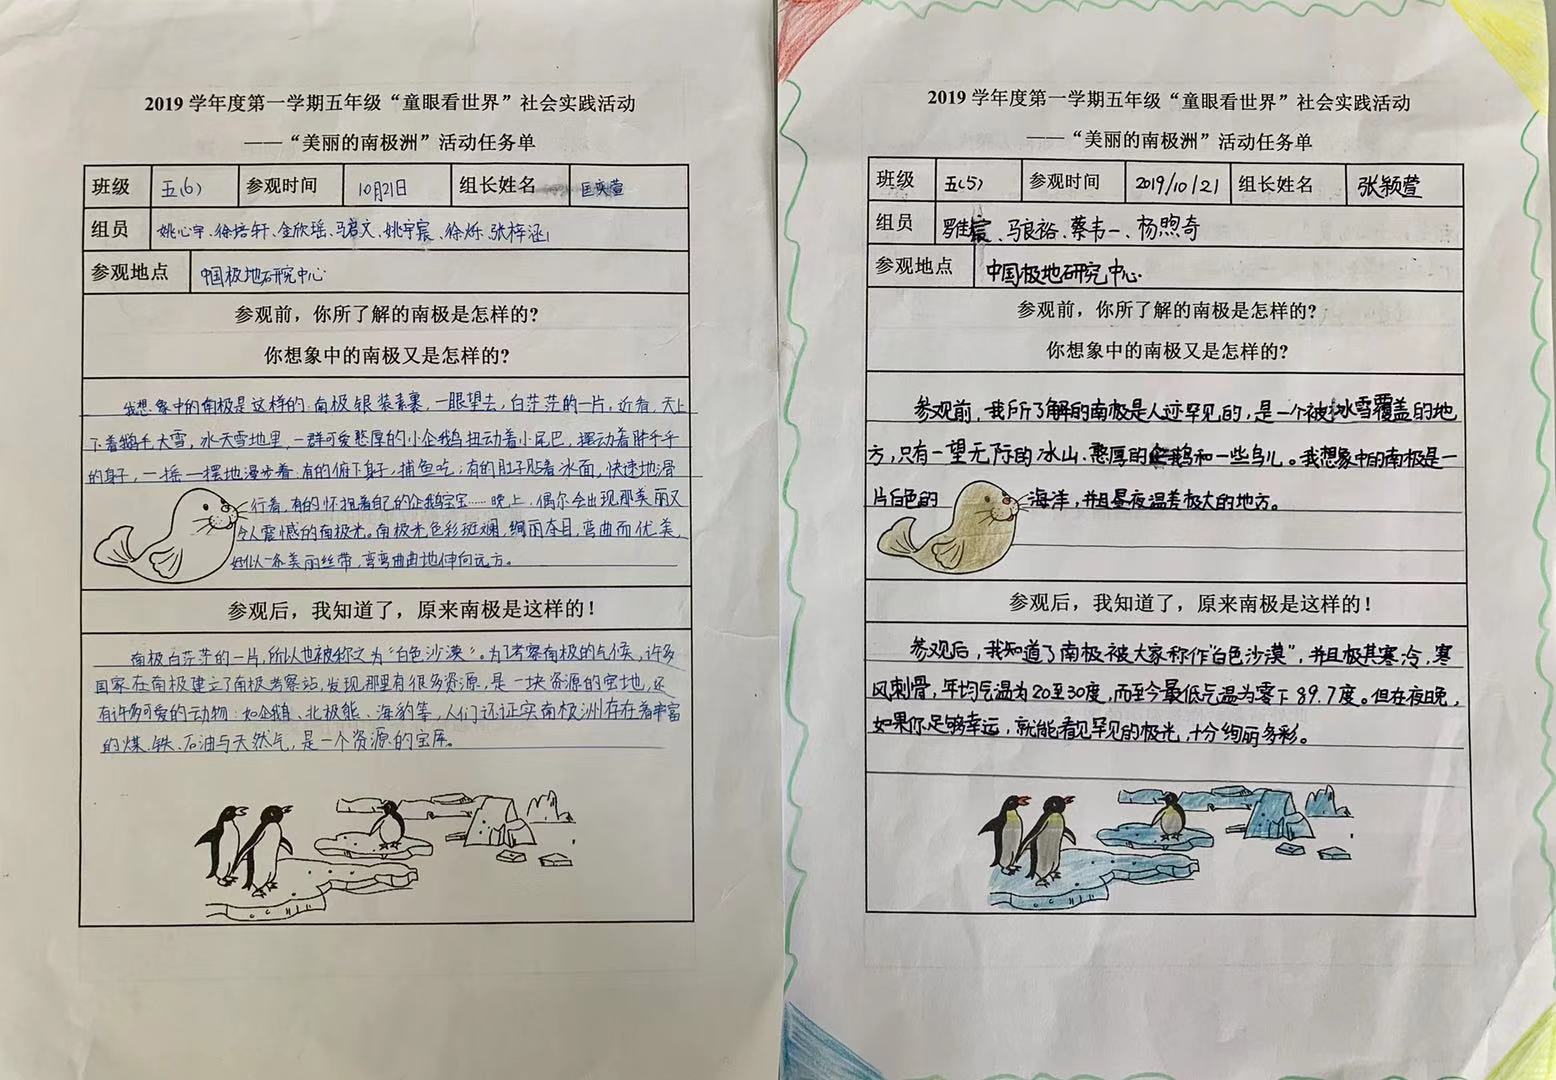 2019 学年度第一学期五年级“童眼看世界”社会实践活动
——“美丽的南极洲”活动任务单
班级 五(6) 参观时间 10月21日 组长姓名
组员 姚心宇、徐培轩、金欣瑶、马君文、姚宇宸、徐烁、张梓涵
参观地点 中国极地研究中心
参观前，你所了解的南极是怎样的?
你想象中的南极又是怎样的?
我想象中的南极是这样的：南极银装素裹，一眼望去，白茫茫的一片，近看，天上
下着鹅毛大雪，冰天雪地里，一群可爱憨厚的小企鹅扭动着小尾巴，摆动着胖乎乎
的身子，一摇一摆地漫步着；有的俯下身子，捕鱼吃；有的肚子贴着冰面，快速地滑
行着，有的怀抱着自己的企鹅宝宝……晚上，偶尔会出现那美丽又
令人震憾的南极光。南极光色彩斑斓，绚丽夺目，弯曲而优美，
好似一条美丽丝带，弯弯曲曲地伸向远方。
参观后，我知道了，原来南极是这样的！
南极白茫茫的一片，所以也被称之为“白色沙漠”。为了考察南极的气候，许多
国家在南极建立了南极考察站，发现那里有很多资源，是一块资源的宝地，还
有许多可爱的动物：如企鹅、北极熊、海豹等，人们还证实南极洲存在着丰富
的煤、铁、石油与天然气，是一个资源的宝库。
2019 学年度第一学期五年级“童眼看世界”社会实践活动
——“美丽的南极洲”活动任务单
班级 五(5) 参观时间 2019/10/21 组长姓名 张颖萱
组员 马良裕、蔡韦一、杨煦奇
参观地点 中国极地研究中心.
参观前，你所了解的南极是怎样的?
你想象中的南极又是怎样的?
参观前，我所了解的南极是人迹罕见的，是一个被冰雪覆盖的地
方，只有一望无际的冰山、憨厚的企鹅和一些鸟儿。我想象中的南极是一
片白色的海洋，并且昼夜温差极大的地方。
参观后，我知道了，原来南极是这样的！
参观后，我知道了南极被大家称作“白色沙漠”，并且极其寒冷，寒
风刺骨，年均气温为20至30度，而至今最低气温为零下89.7度。但在夜晚，
如果你足够幸运，就能看见罕见的极光，十分绚丽多彩。